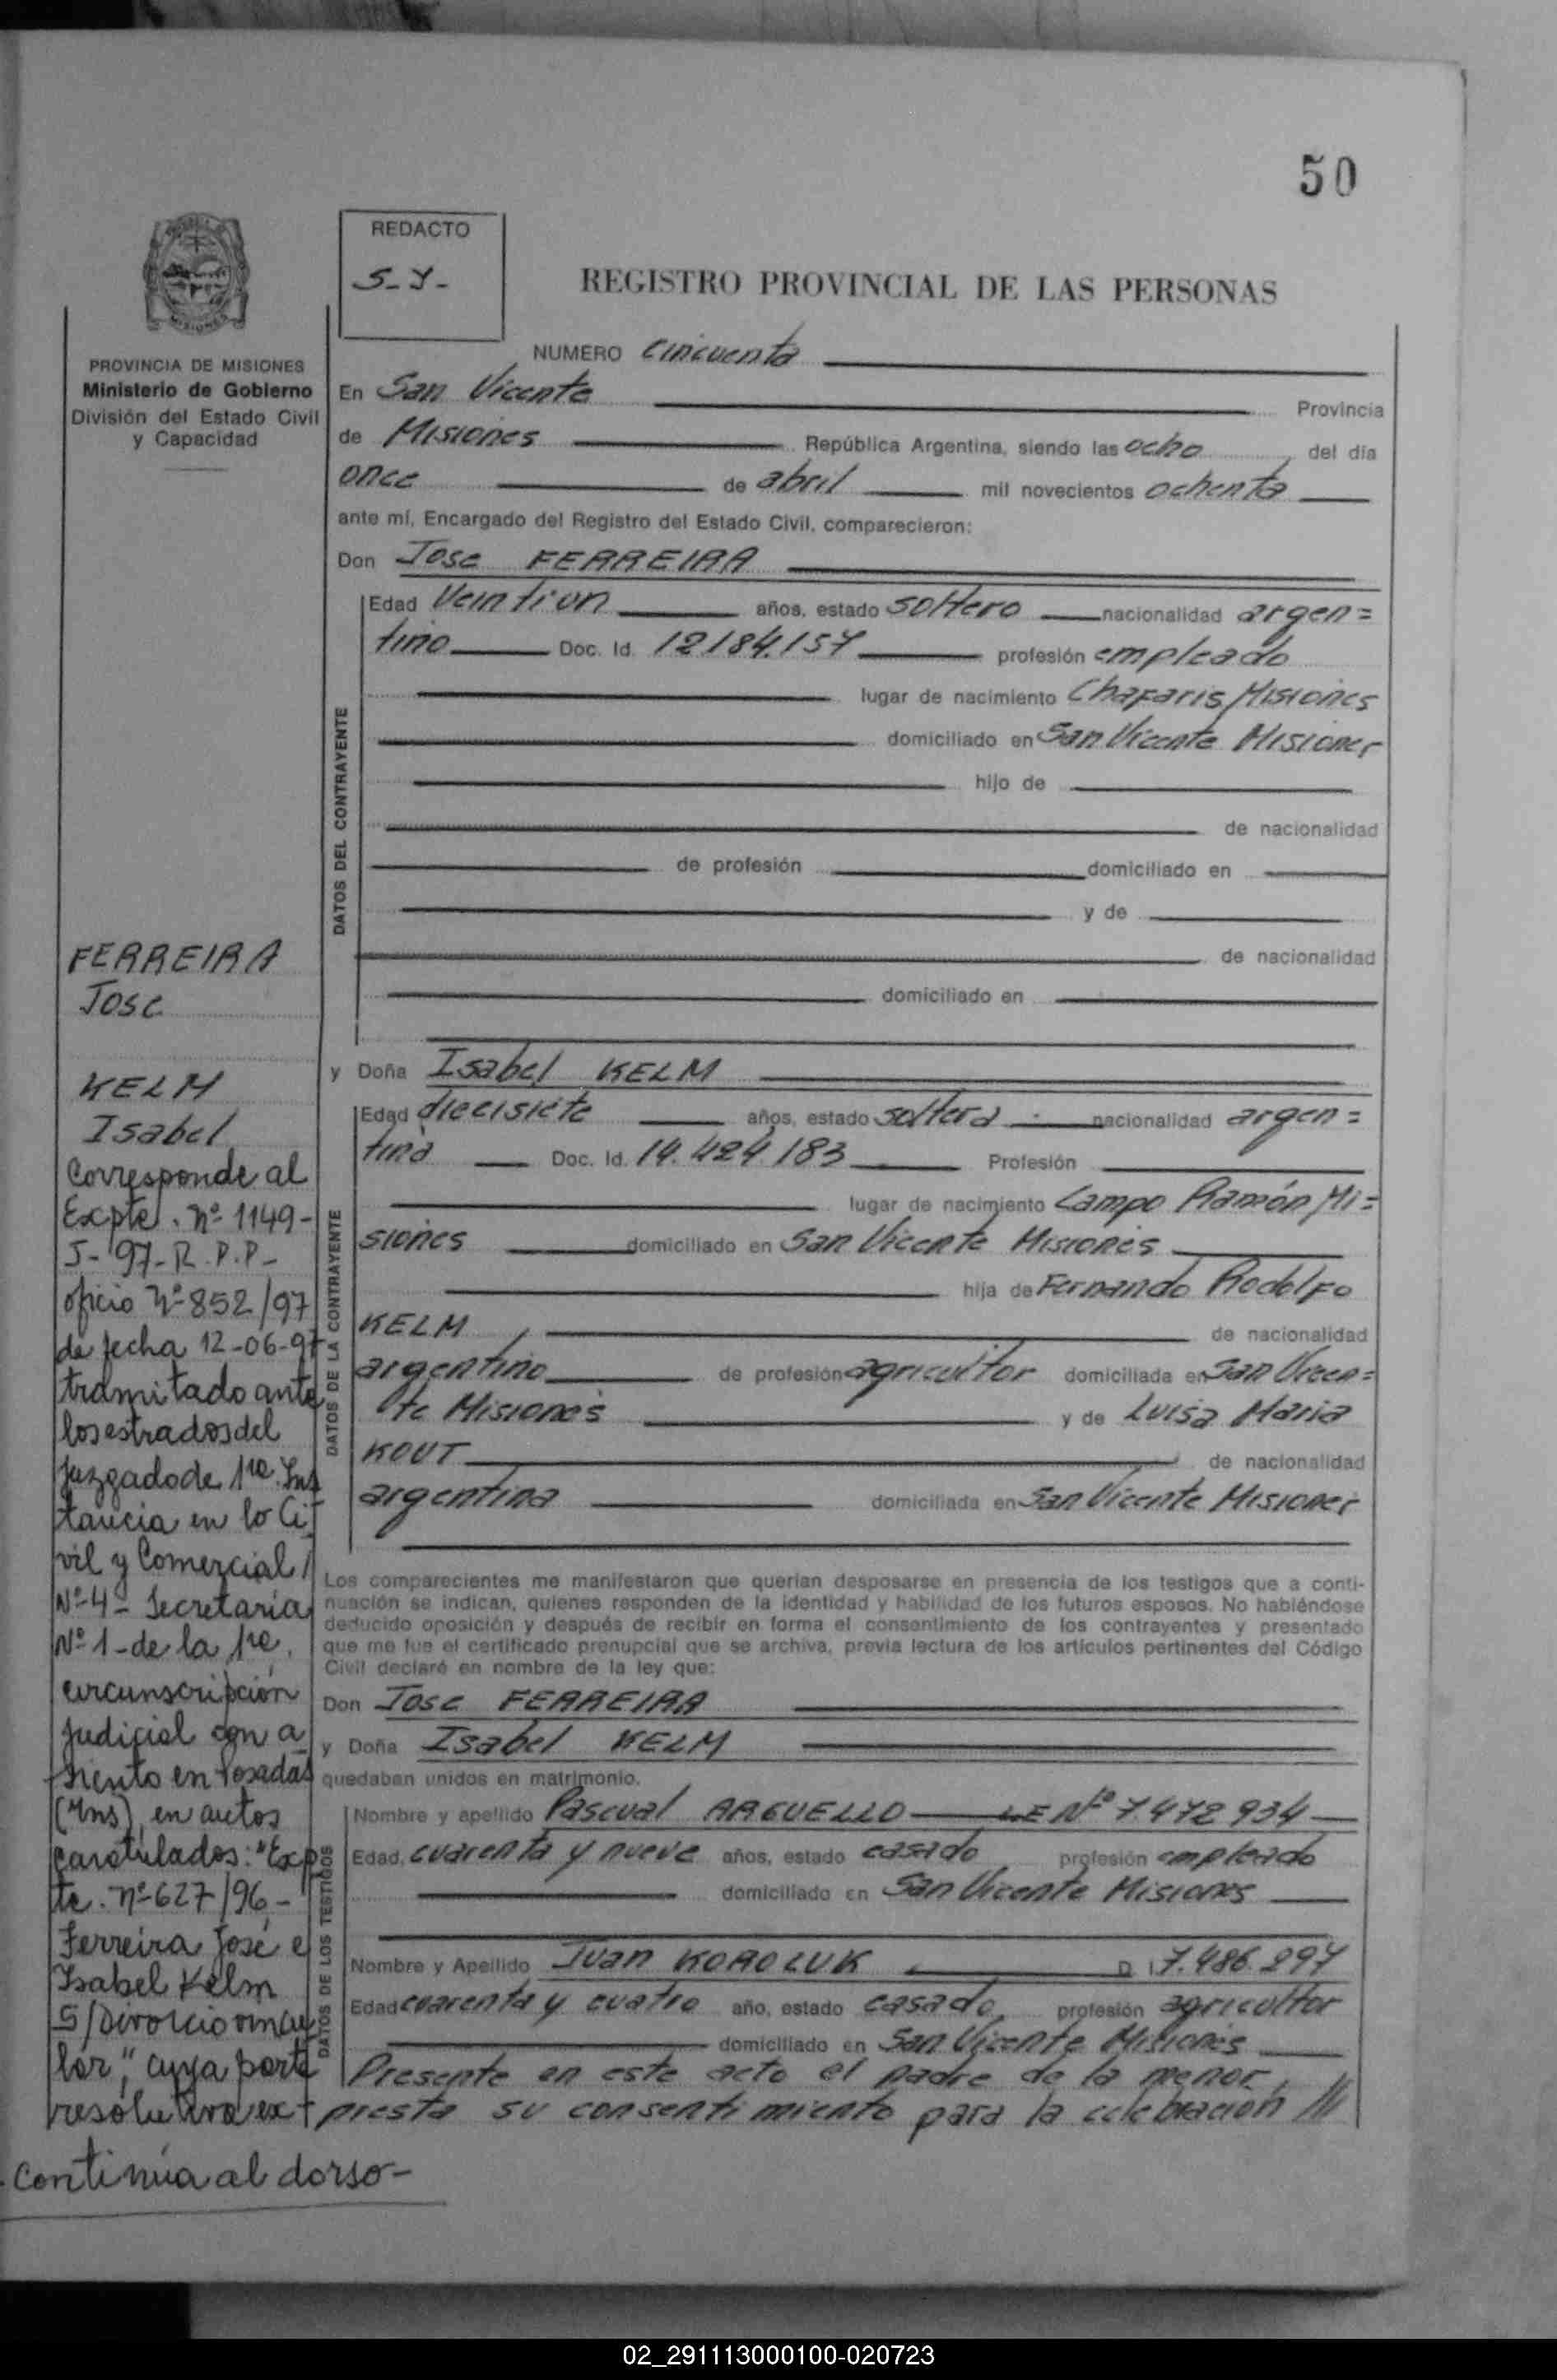 50
REDACTO
S-Y-
REGISTRO PROVINCIAL DE LAS PERSONAS
PROVINCIA DE MISIONES
Ministerio de Gobierno
División del Estado Civil
y Capacidad
NUMERO cincuenta
En San Vicente Provincia
de Misiones República Argentina, siendo las ocho del día
once de abril mil novecientos ochenta
ante mí, Encargado del Registro del Estado Civil, comparecieron:
Don Jose FERREIRA
DATOS DEL CONTRAYENTE
Edad Veintiun años, estado soltero nacionalidad argen=
tino Doc. Id. 12.184.157 profesión empleado
lugar de nacimiento Chafaris Misiones
domiciliado en San Vicente Misiones
hijo de
de nacionalidad
de profesión domiciliado en
y de
de nacionalidad
domiciliado en
y Doña Isabel KELM
DATOS DE LA CONTRAYENTE
Edad diecisiete años, estado soltera nacionalidad argen=
tina Doc. Id. 14.424.183 Profesión
lugar de nacimiento Campo Ramón Mi=
siones domiciliado en San Vicente Misiones
hija de Fernando Rodolfo
KELM, de nacionalidad
argentino de profesión agricultor domiciliada en San Vicen=
te Misiones y de Luisa Maria
KOUT de nacionalidad
argentina domiciliada en San Vicente Misiones
Los comparecientes me manifestaron que querían desposarse en presencia de los testigos que a conti-
nuación se indican, quienes responden de la identidad y habilidad de los futuros esposos. No habiéndose
deducido oposición y después de recibir en forma el consentimiento de los contrayentes y presentado
que me fue el certificado prenupcial que se archiva, previa lectura de los artículos pertinentes del Código
Civil declaré en nombre de la ley que:
Don Jose FERREIRA
y Doña Isabel KELM
quedaban unidos en matrimonio.
DATOS DE LOS TESTIGOS
Nombre y apellido Pascual ARGUELLO LE Nº 7.472.934
Edad, cuarenta y nueve años, estado casado profesión empleado
domiciliado en San Vicente Misiones
Nombre y Apellido Juan KOROLUK D I 7.486.297
Edad cuarenta y cuatro año, estado casado, profesión agricultor
domiciliado en San Vicente Misiones
Presente en este acto el padre de la menor,
presta su consentimiento para la celebración ///
FERREIRA
Jose
KELM
Isabel
Corresponde al
Expte. nº 1149-
J-97-R.P.P-
oficio Nº 852/97
de fecha 12-06-97
tramitado ante
los estrados del
Juzgado de 1ra. Ins
tancia en lo Ci
vil y Comercial
Nº 4- Secretaría
Nº 1-de la 1ra.
circunscripción
Judicial con a
siento en Posadas
(Mns), en autos
caratulados: "Exp
te. nº 627/96-
Ferreira José e
Isabel Kelm
S/Divorcio vincu
lar", cuya parte
resolutiva ex-
-Continúa al dorso-
02_291113000100-020723